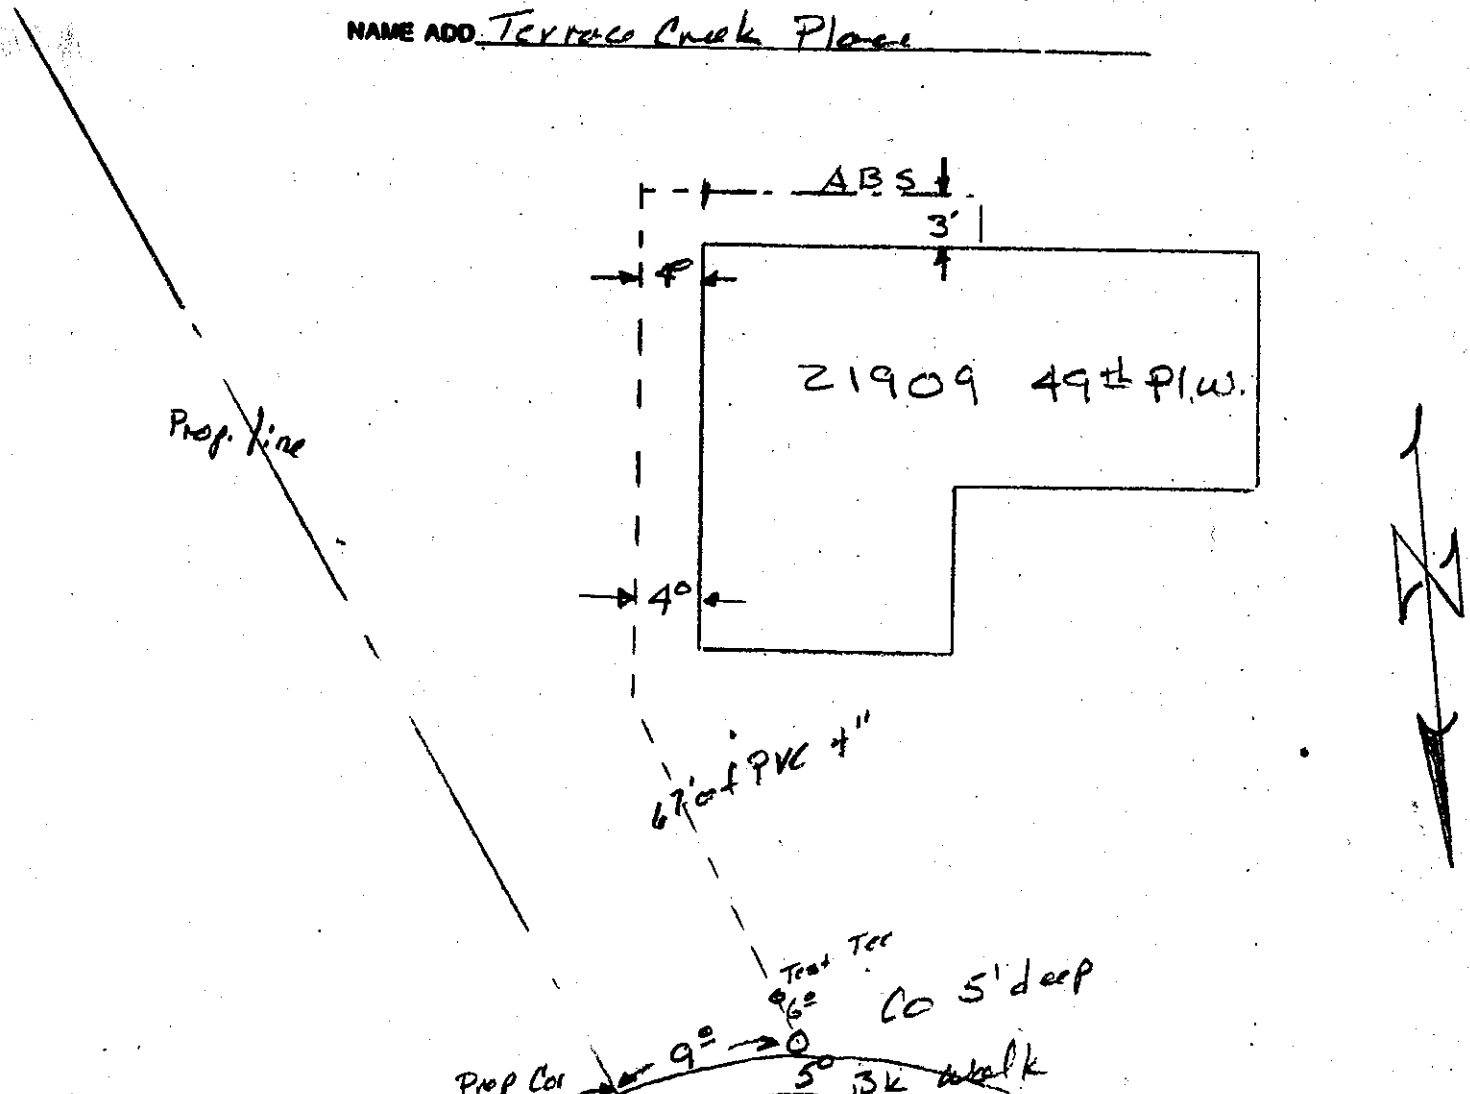 NAME ADD Terrace Creek Place
ABS
3'
4º
21909 49th Pl. W.
Prop. line
N
4º
67' of PVC 4"
Test Tee
6º
CO 5' deep
9º
Prop Cor
5º
walk